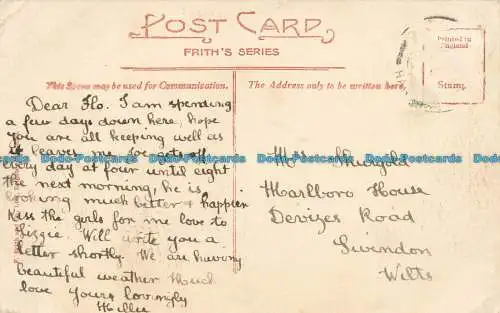 POST CARD
FRITH'S SERIES
Printed in
England
Stamp.
This Space may be used for Communication.
The Address only to be written here.
Dear Flo. I am spending
a few days down here, hope
you are all keeping well as
it leaves me. Joe gets off
every day at four until eight
the next morning, he is
looking much better & happier
Kiss the girls for me love to
Lizzie. Will write you a
letter shortly. We are having
beautiful weather Much
love yours lovingly
Mrs
Marlboro House
Devizes Road
Swindon
Wilts
Dodo-Postcards Dodo-Postcards Dodo-Postcards